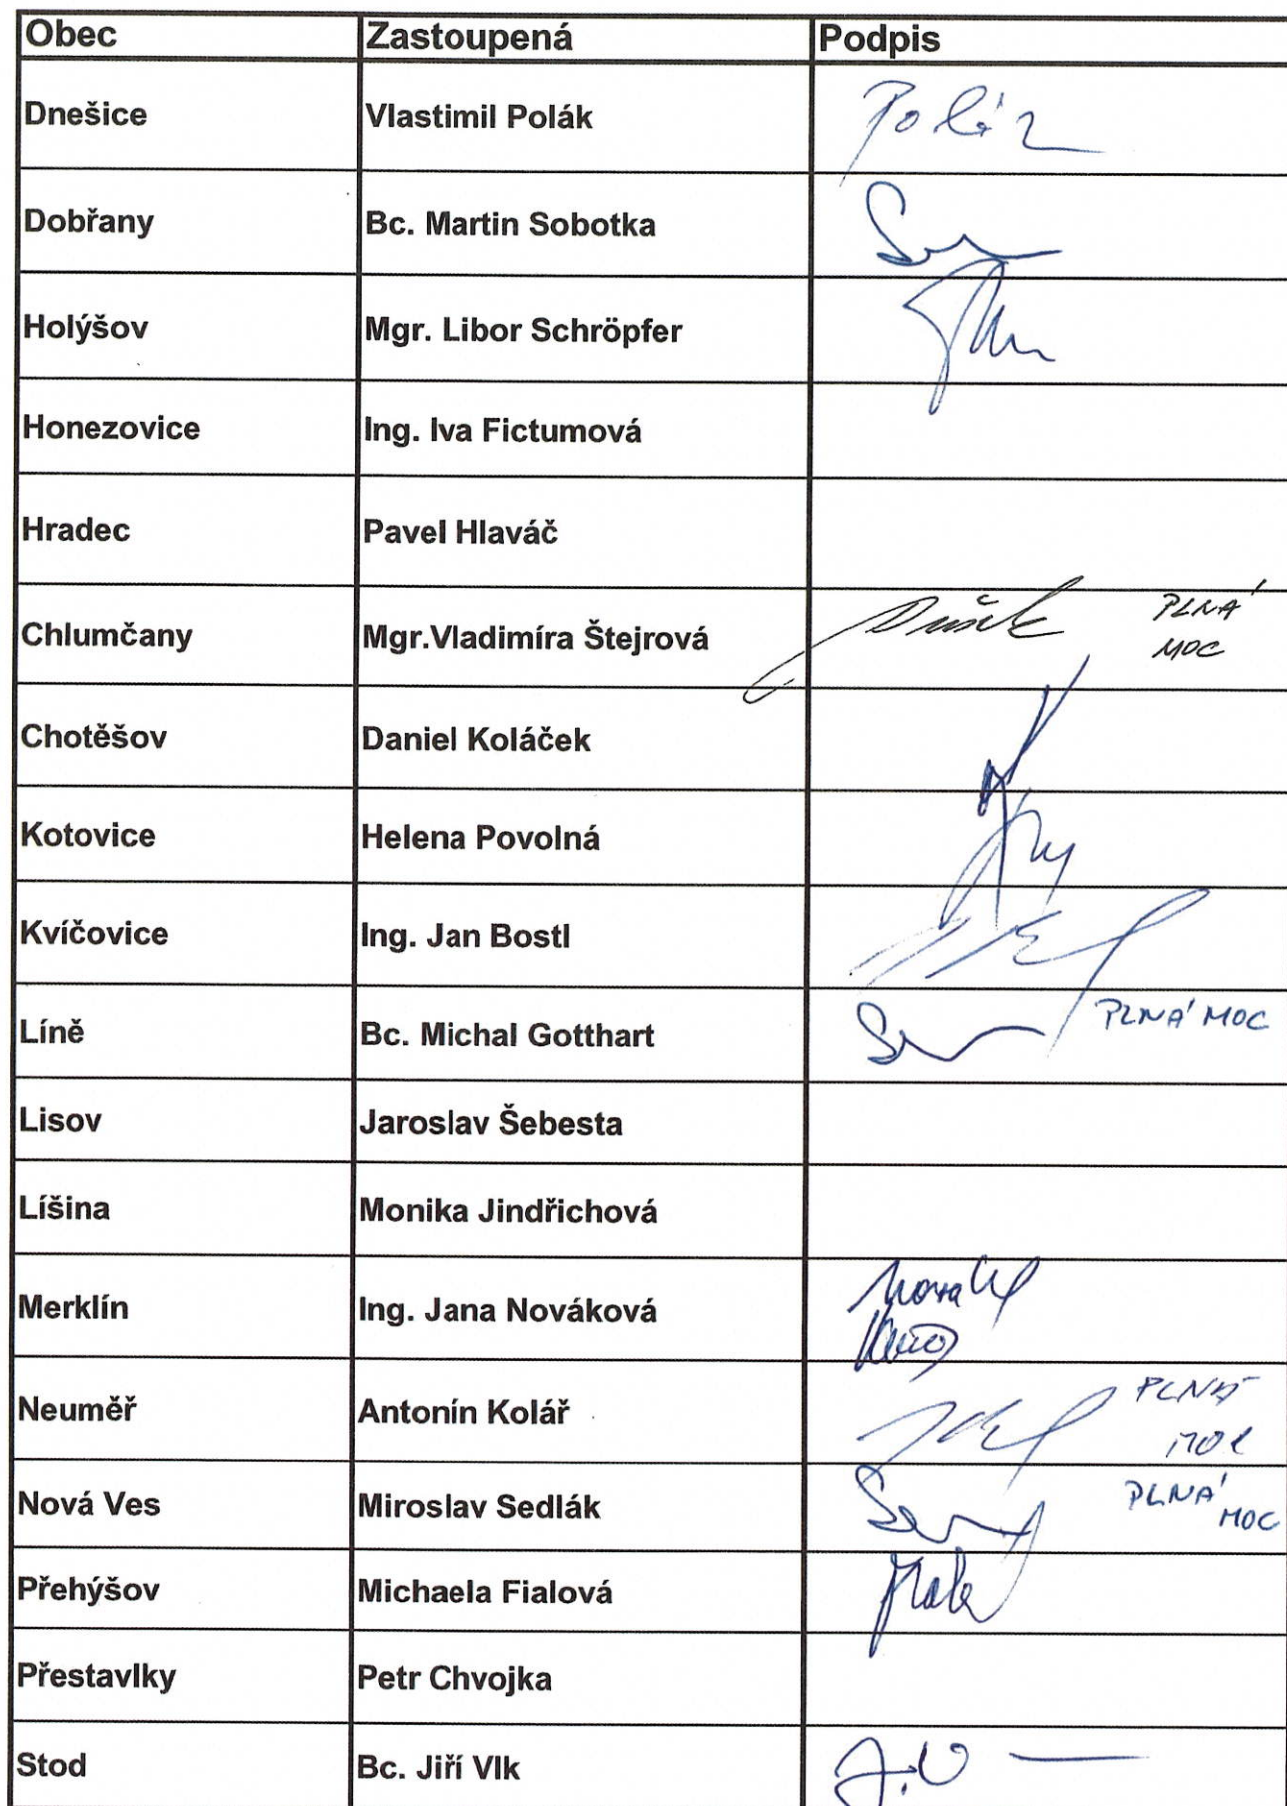 Obec Zastoupená Podpis
Dnešice Vlastimil Polák
Dobřany Bc. Martin Sobotka
Holýšov Mgr. Libor Schröpfer
Honezovice Ing. Iva Fictumová
Hradec Pavel Hlaváč
Chlumčany Mgr.Vladimíra Štejrová PLNÁ
MOC
Chotěšov Daniel Koláček
Kotovice Helena Povolná
Kvíčovice Ing. Jan Bostl
Líně Bc. Michal Gotthart PLNÁ MOC
Lisov Jaroslav Šebesta
Líšina Monika Jindřichová
Merklín Ing. Jana Nováková
Neuměř Antonín Kolář PLNÁ
MOC
Nová Ves Miroslav Sedlák PLNÁ
MOC
Přehýšov Michaela Fialová
Přestavlky Petr Chvojka
Stod Bc. Jiří Vlk